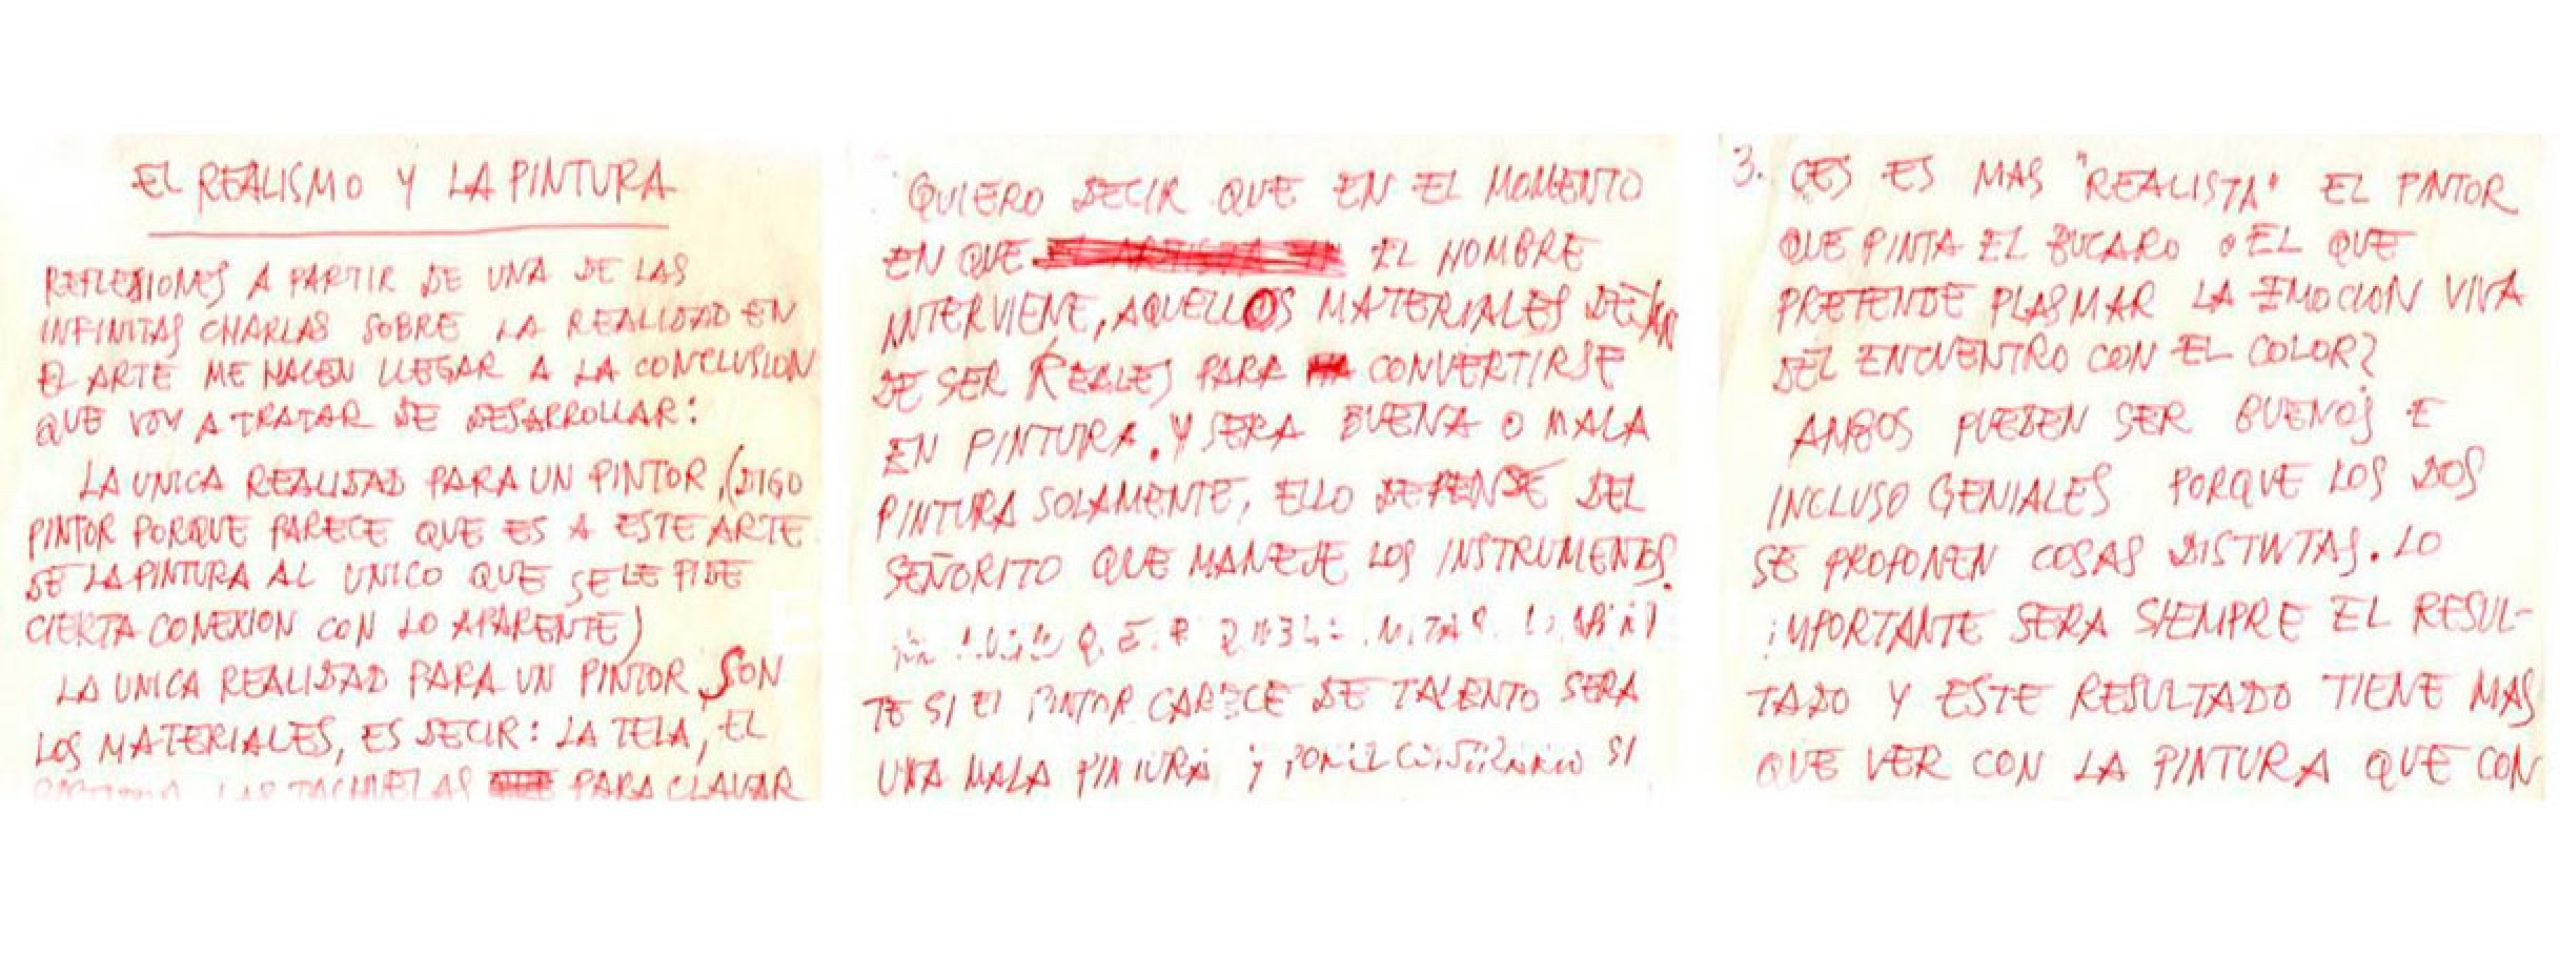 EL REALISMO Y LA PINTURA
REFLEXIONES A PARTIR DE UNA DE LAS
INFINITAS CHARLAS SOBRE LA REALIDAD EN
EL ARTE ME HACEN LLEGAR A LA CONCLUSION
QUE VOY A TRATAR DE DESARROLLAR:
LA UNICA REALIDAD PARA UN PINTOR, (DIGO
PINTOR PORQUE PARECE QUE ES A ESTE ARTE
DE LA PINTURA AL UNICO QUE SE LE PIDE
CIERTA CONEXION CON LO APARENTE)
LA UNICA REALIDAD PARA UN PINTOR, SON
LOS MATERIALES, ES DECIR: LA TELA, EL
LAS TACHUELAS PARA CLAVAR
QUIERO DECIR QUE EN EL MOMENTO
EN QUE EL HOMBRE
INTERVIENE, AQUELLOS MATERIALES DEJAN
DE SER REALES PARA CONVERTIRSE
EN PINTURA. Y SERA BUENA O MALA
PINTURA SOLAMENTE, ELLO DEPENDE DEL
SEÑORITO QUE MANEJE LOS INSTRUMENTOS.
TE SI EL PINTOR CARECE DE TALENTO SERA
UNA MALA PINTURA Y POR EL CONTRARIO SI
3. CES ES MAS "REALISTA" EL PINTOR
QUE PINTA EL BUCARO O EL QUE
PRETENDE PLASMAR LA EMOCION VIVA
DEL ENCUENTRO CON EL COLOR?
AMBOS PUEDEN SER BUENOS E
INCLUSO GENIALES PORQUE LOS DOS
SE PROPONEN COSAS DISTINTAS. LO
IMPORTANTE SERA SIEMPRE EL RESUL-
TADO Y ESTE RESULTADO TIENE MAS
QUE VER CON LA PINTURA QUE CON